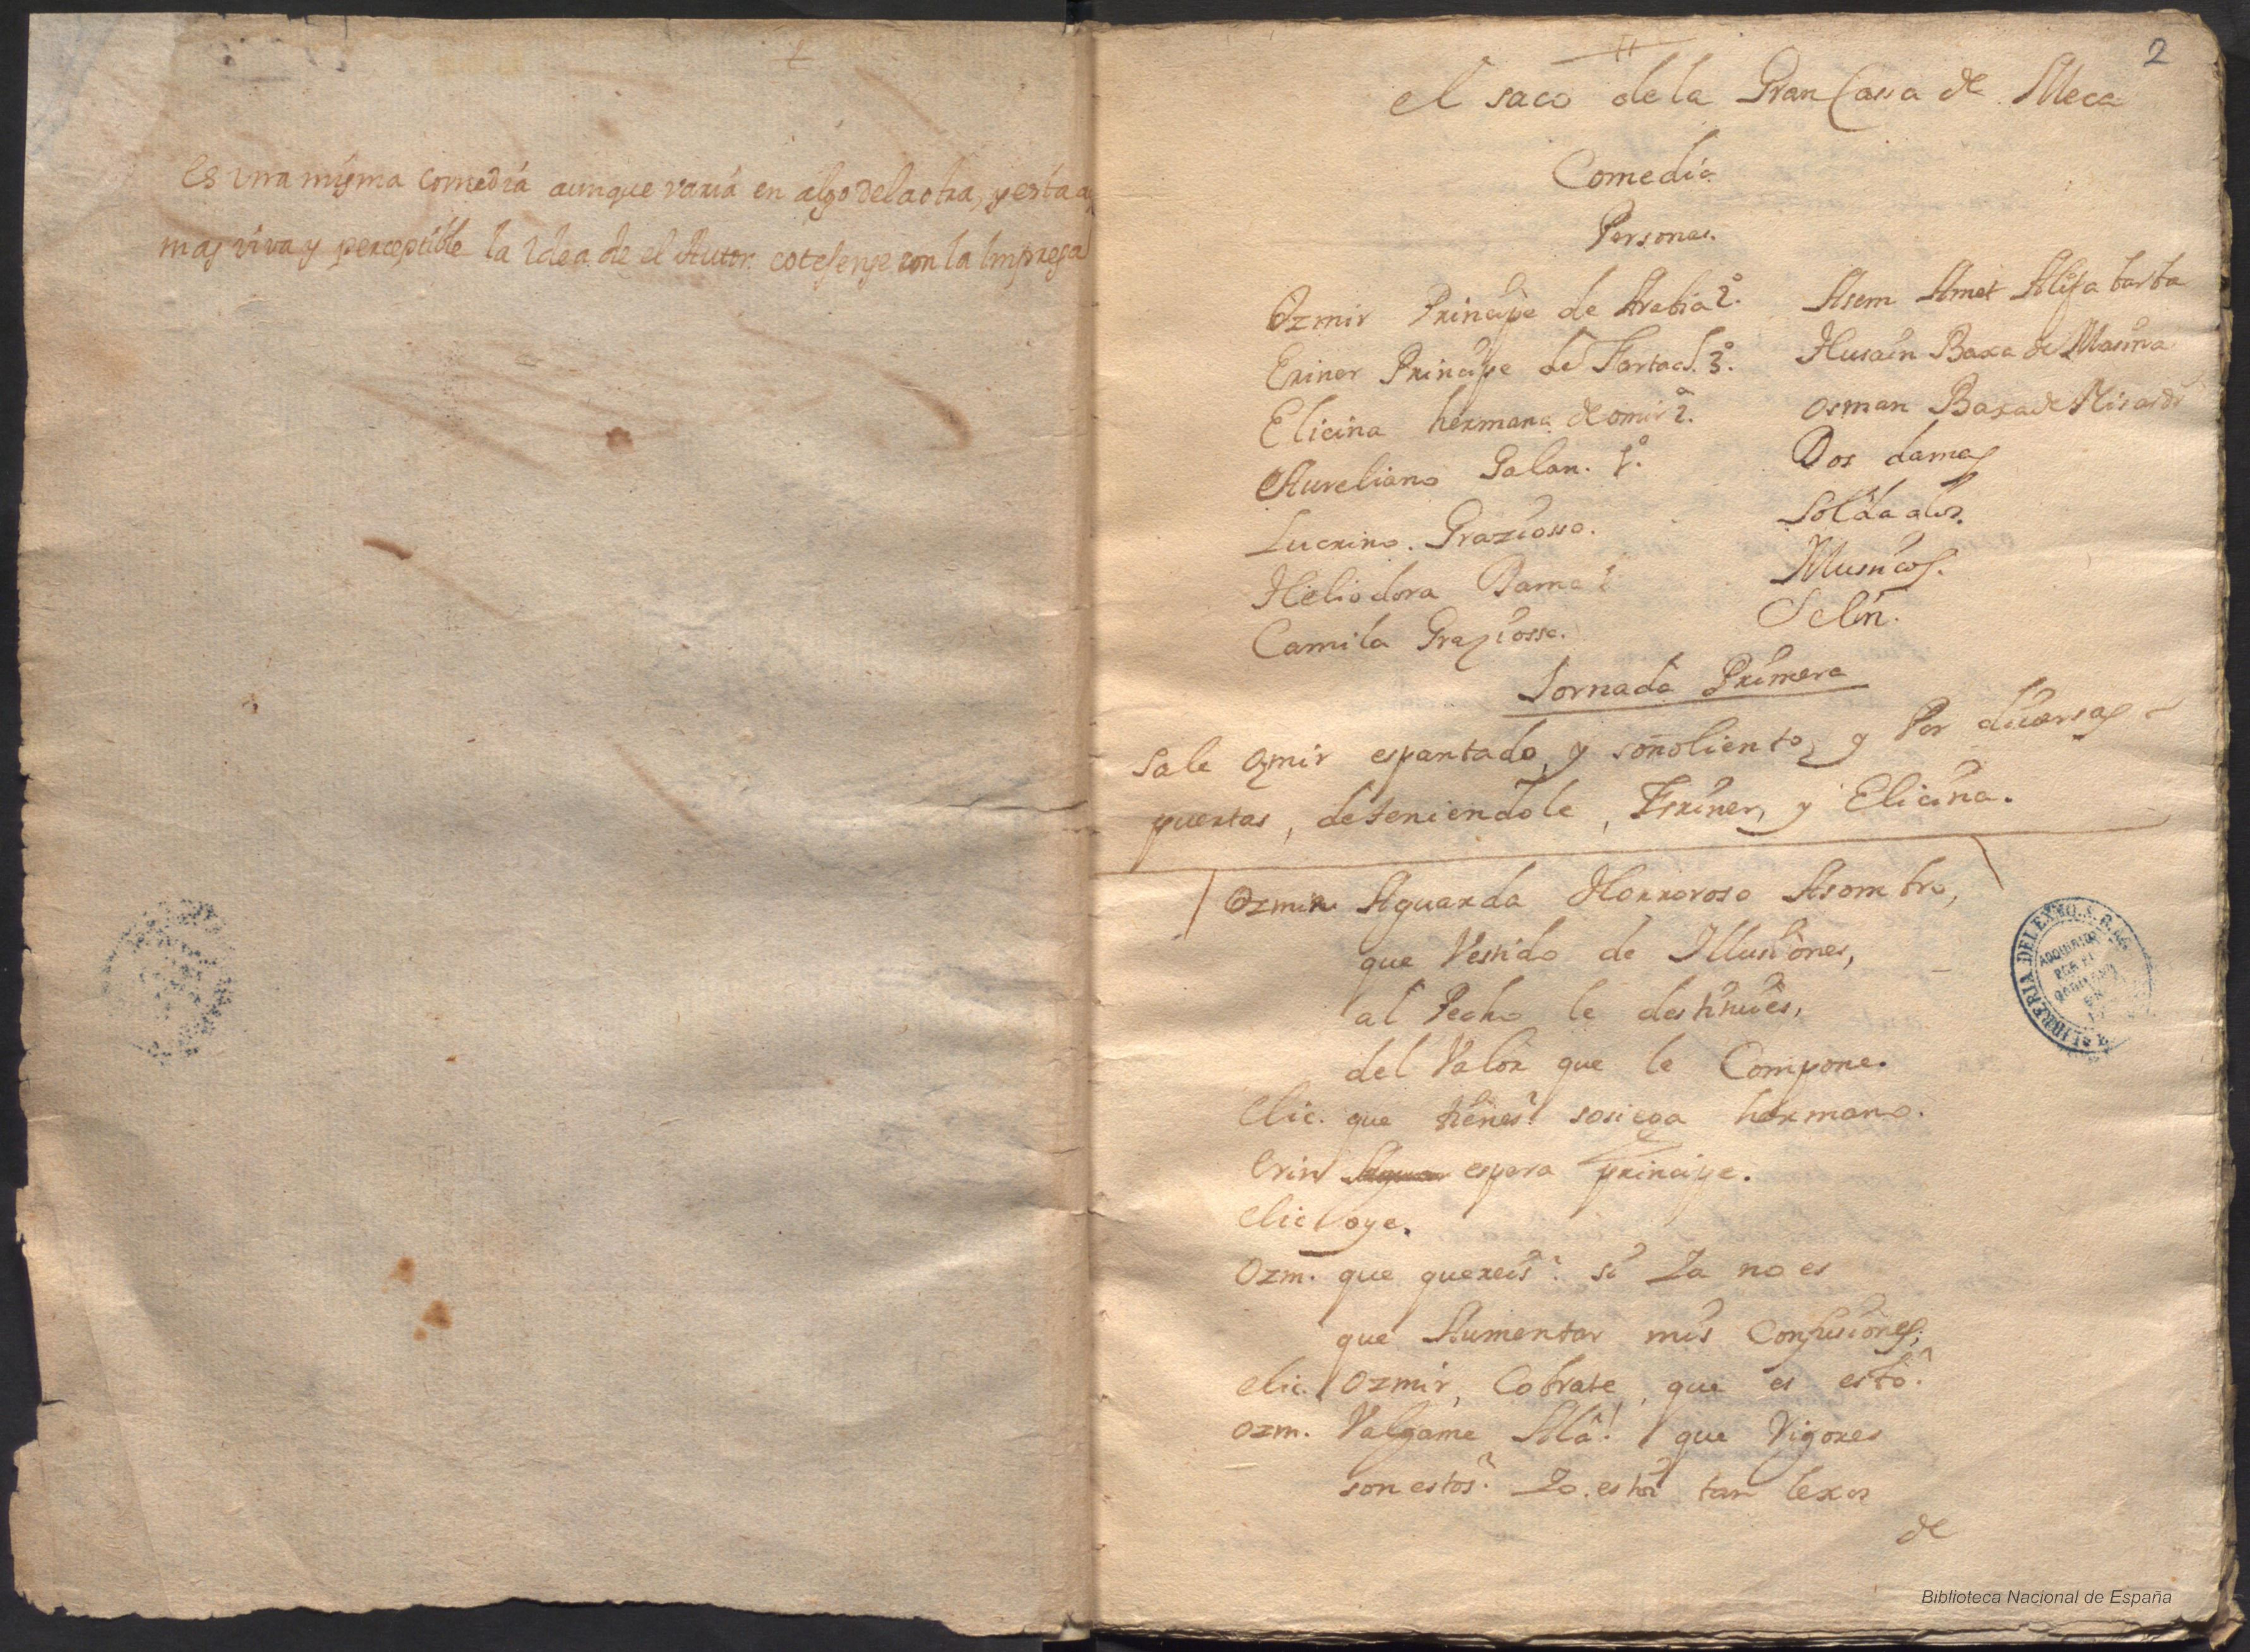 Es vna mysma comedia aunque varia en algo de la otra, y esta a
mas viva y perceptible la idea de el Autor cotejense con la Impresa
2
el saco de la Gran Cassa de Meca
Comedia
Personas.
Ozmir Principe de Arabia 2º.
Eriner Principe de Fartach. 3º.
Elicina hermana de omir 2ª.
Aureliano Galan. 1º.
Lucrino. Graziosso.
Heliodora Dama 1
Camila Graziossa.
Asem Amet Alifa barba
Husain Baxa de
Osman Baxa de
Dos damas
Soldados.
Musicos.
Selin.
Jornada Primera
Sale Ozmir espantado, y soñoliento, y Por diuersas
puertas, deteniendole, Eriner, y Elicina.
Ozmir Aguarda Horroroso Asombro,
que Vestido de Illusiones,
al Pecho le destituies,
del Valor que le Compone.
Elic. que tienes? sosiega hermano.
Erin espera principe.
Elic oye.
Ozm. que quereis? si Ya no es
que Aumentar mis Confusiones;
elic. Ozmir, Cobrate, que es esto?
ozm. Valgame Alâ! que Vigores
son estos? Yo estoi tan lexos
de
Biblioteca Nacional de España